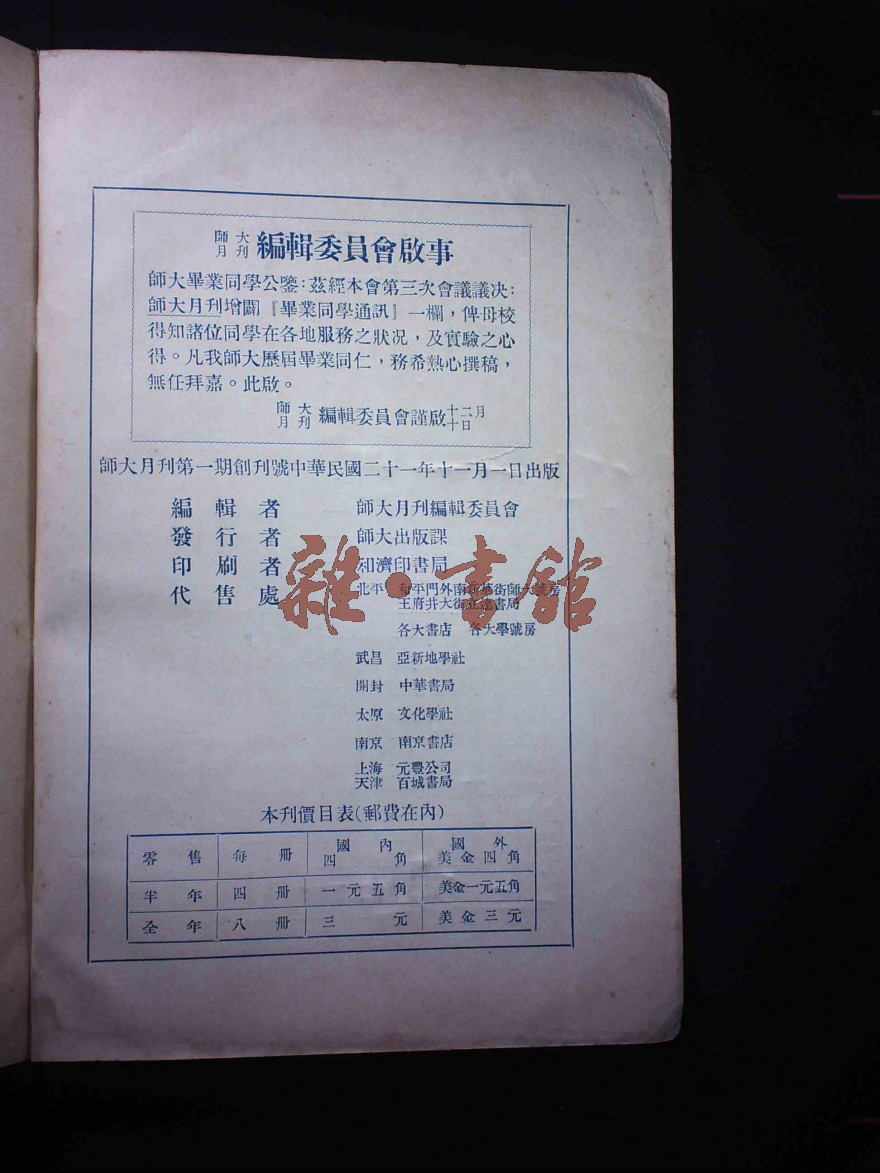 師大月刊 編輯委員會啟事
師大畢業同學公鑒：茲經本會第三次會議議决：
師大月刊增闢『畢業同學通訊』一欄，俾母校
得知諸位同學在各地服務之狀况，及實驗之心
得。凡我師大歷屆畢業同仁，務希熱心撰稿，
無任拜嘉。此啟。
師大月刊 編輯委員會謹啟 十二月十日
師大月刊第一期創刊號中華民國二十一年十一月一日出版
編輯者 師大月刊編輯委員會
發行者 師大出版課
印刷者 和濟印書局
代售處 北平 和平門外南新華街師大號房
王府井大街立達書局
各大書店 各大學號房
武昌 亞新地學社
開封 中華書局
太原 文化學社
南京 南京書店
上海 元豐公司
天津 百城書局
本刊價目表(郵費在內)
零售 每冊 國內四角 國外美金四角
半年 四冊 一元五角 美金一元五角
全年 八冊 三元 美金三元
雜·書館